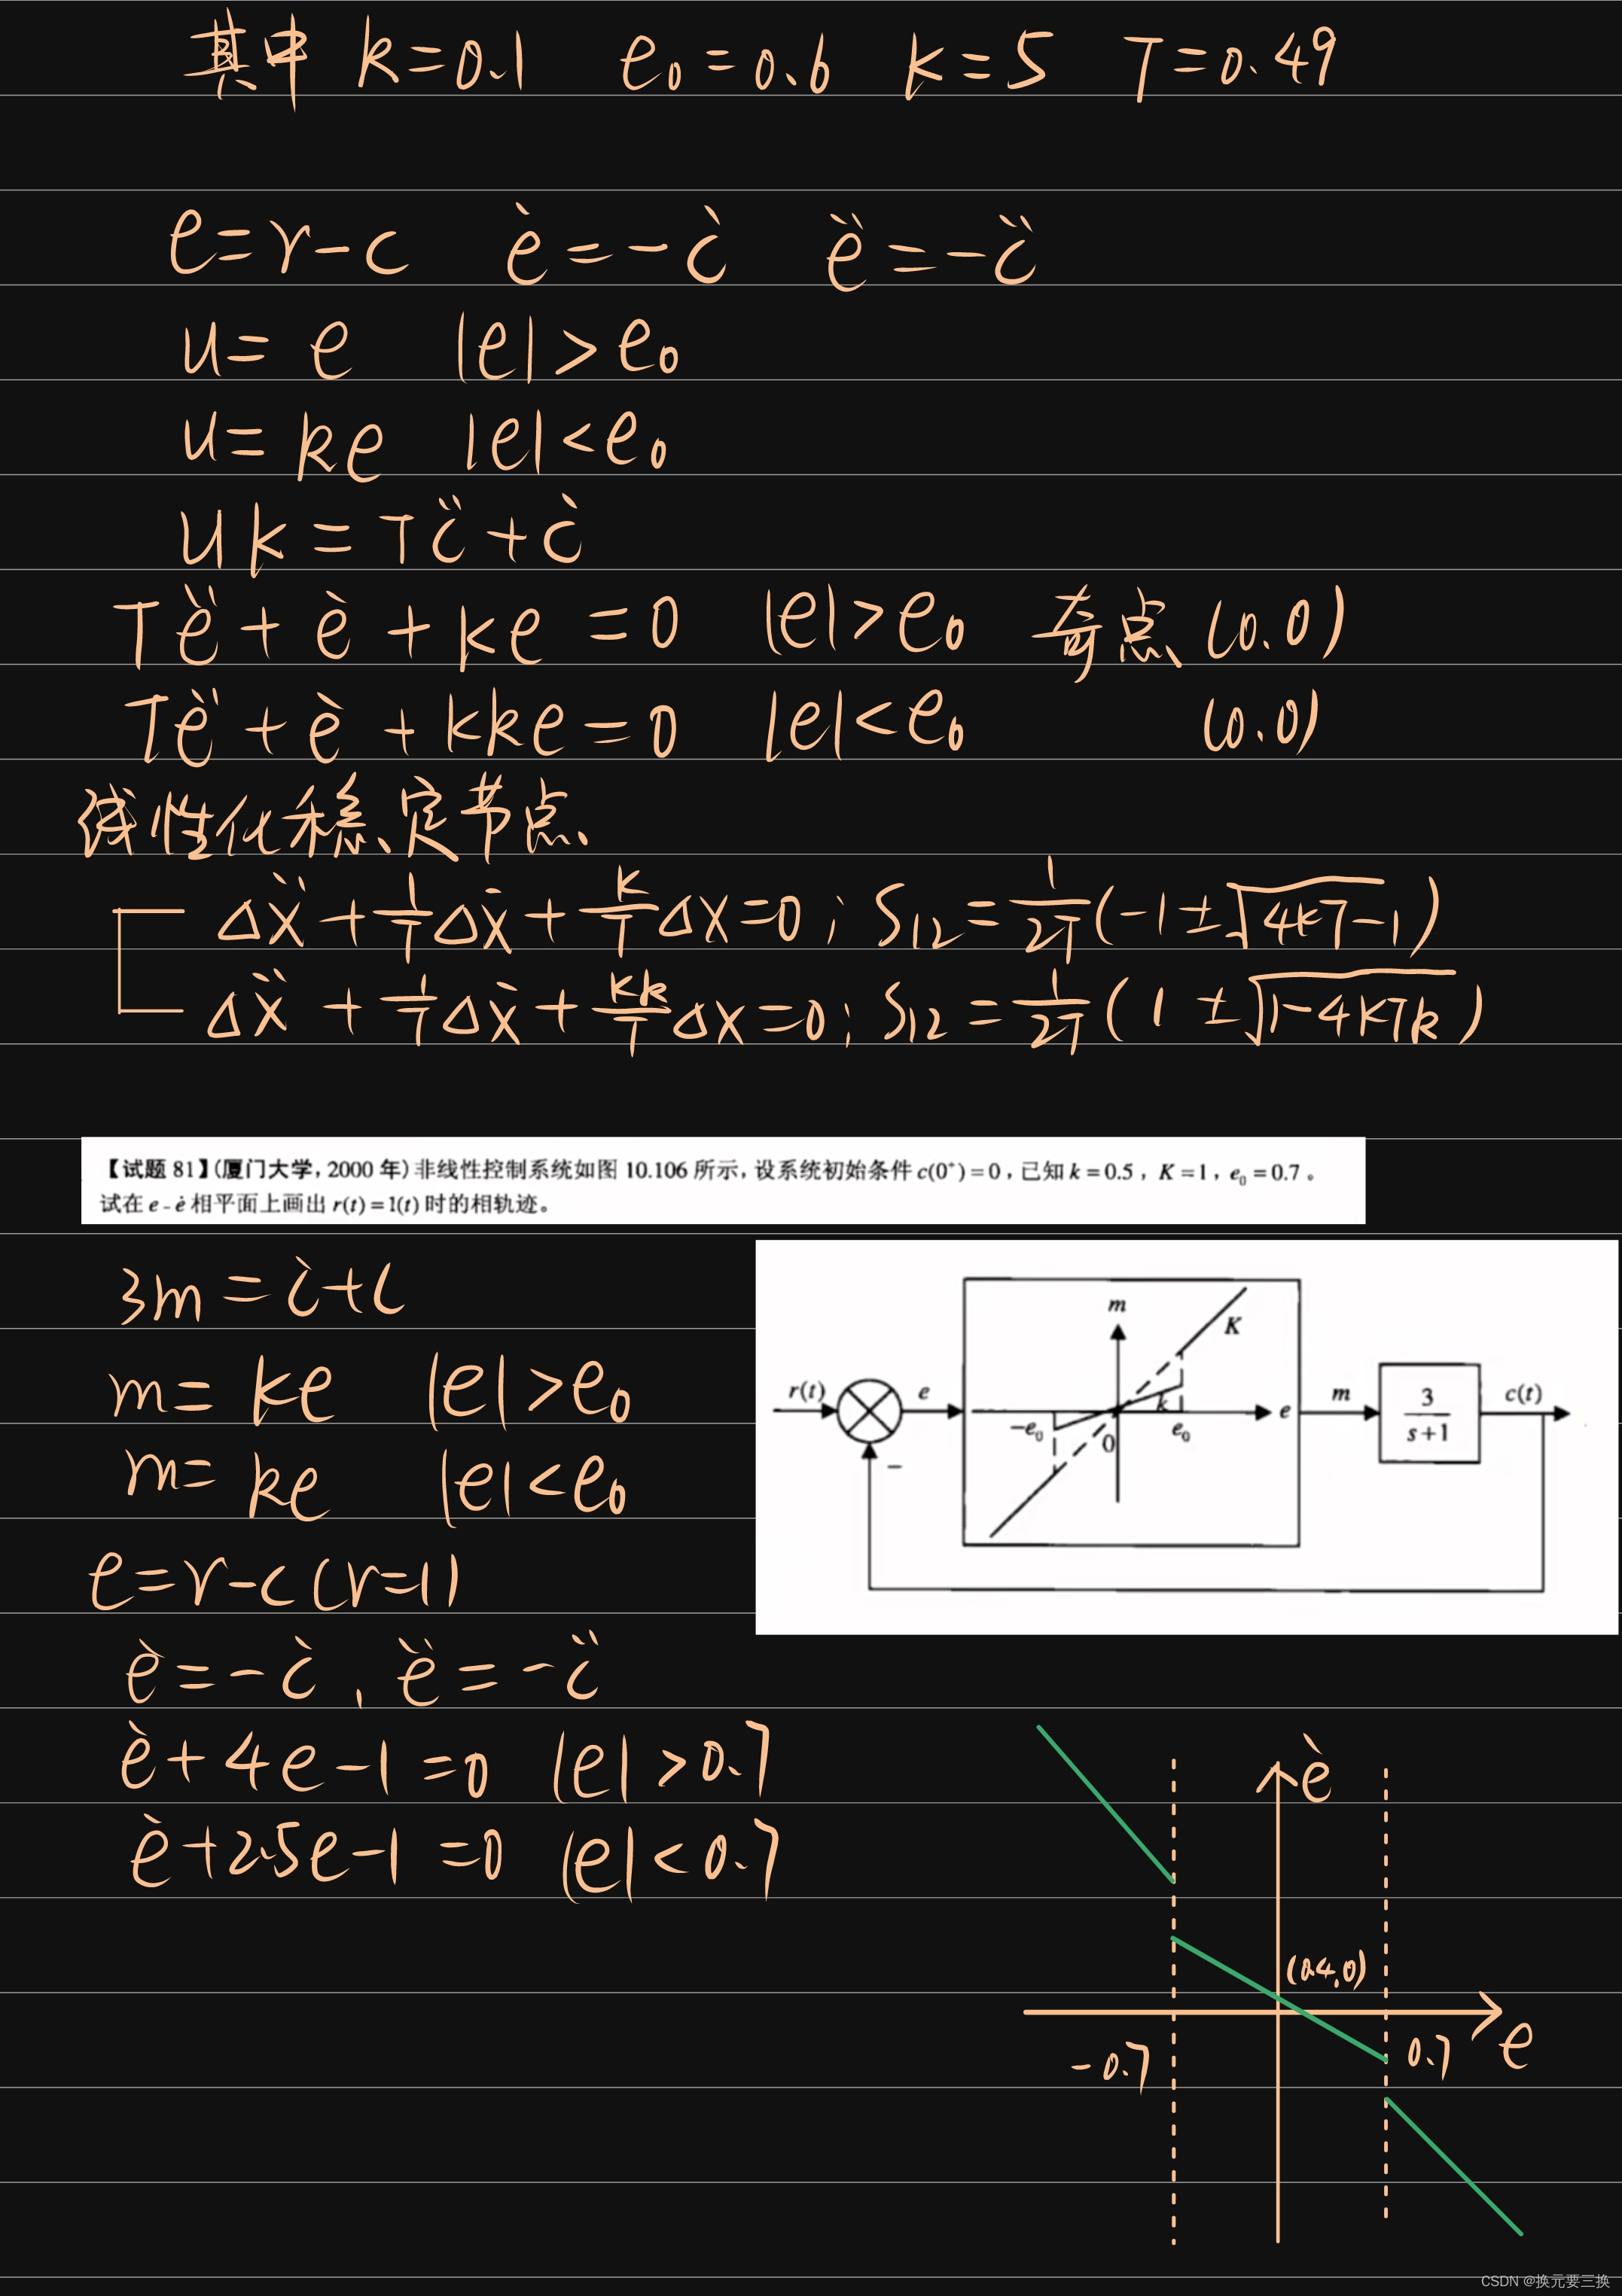 其中 k=0.1 e₀=0.6 K=5 T=0.49
e=r-c ė=-ċ ë=-c̈
u=e |e|>e₀
u=ke |e|<e₀
uK=Tc̈+ċ
Të+ė+Ke=0 |e|>e₀ 奇点(0.0)
Të+ė+Kke=0 |e|<e₀ (0.0)
线性化稳定节点
Δẍ+1/T Δẋ+K/T Δx=0; S₁₂=1/2T(-1±√4KT-1)
Δẍ+1/T Δẋ+Kk/T Δx=0; S₁₂=1/2T(1±√1-4KTk)
【试题 81】(厦门大学,2000 年)非线性控制系统如图 10.106 所示,设系统初始条件 c(0⁺)=0,已知 k=0.5,K=1,e₀=0.7。
试在 e-ė 相平面上画出 r(t)=1(t) 时的相轨迹。
3m=ċ+c
m=Ke |e|>e₀
m=ke |e|<e₀
e=r-c(r=1)
ė=-ċ,ë=-c̈
ė+4e-1=0 |e|>0.7
ė+2.5e-1=0 |e|<0.7
m
K
r(t) e m c(t)
k
-e₀ 0 e₀ e
3/(s+1)
−
ė
(0.4,0)
-0.7 0.7 e
CSDN @换元要三换